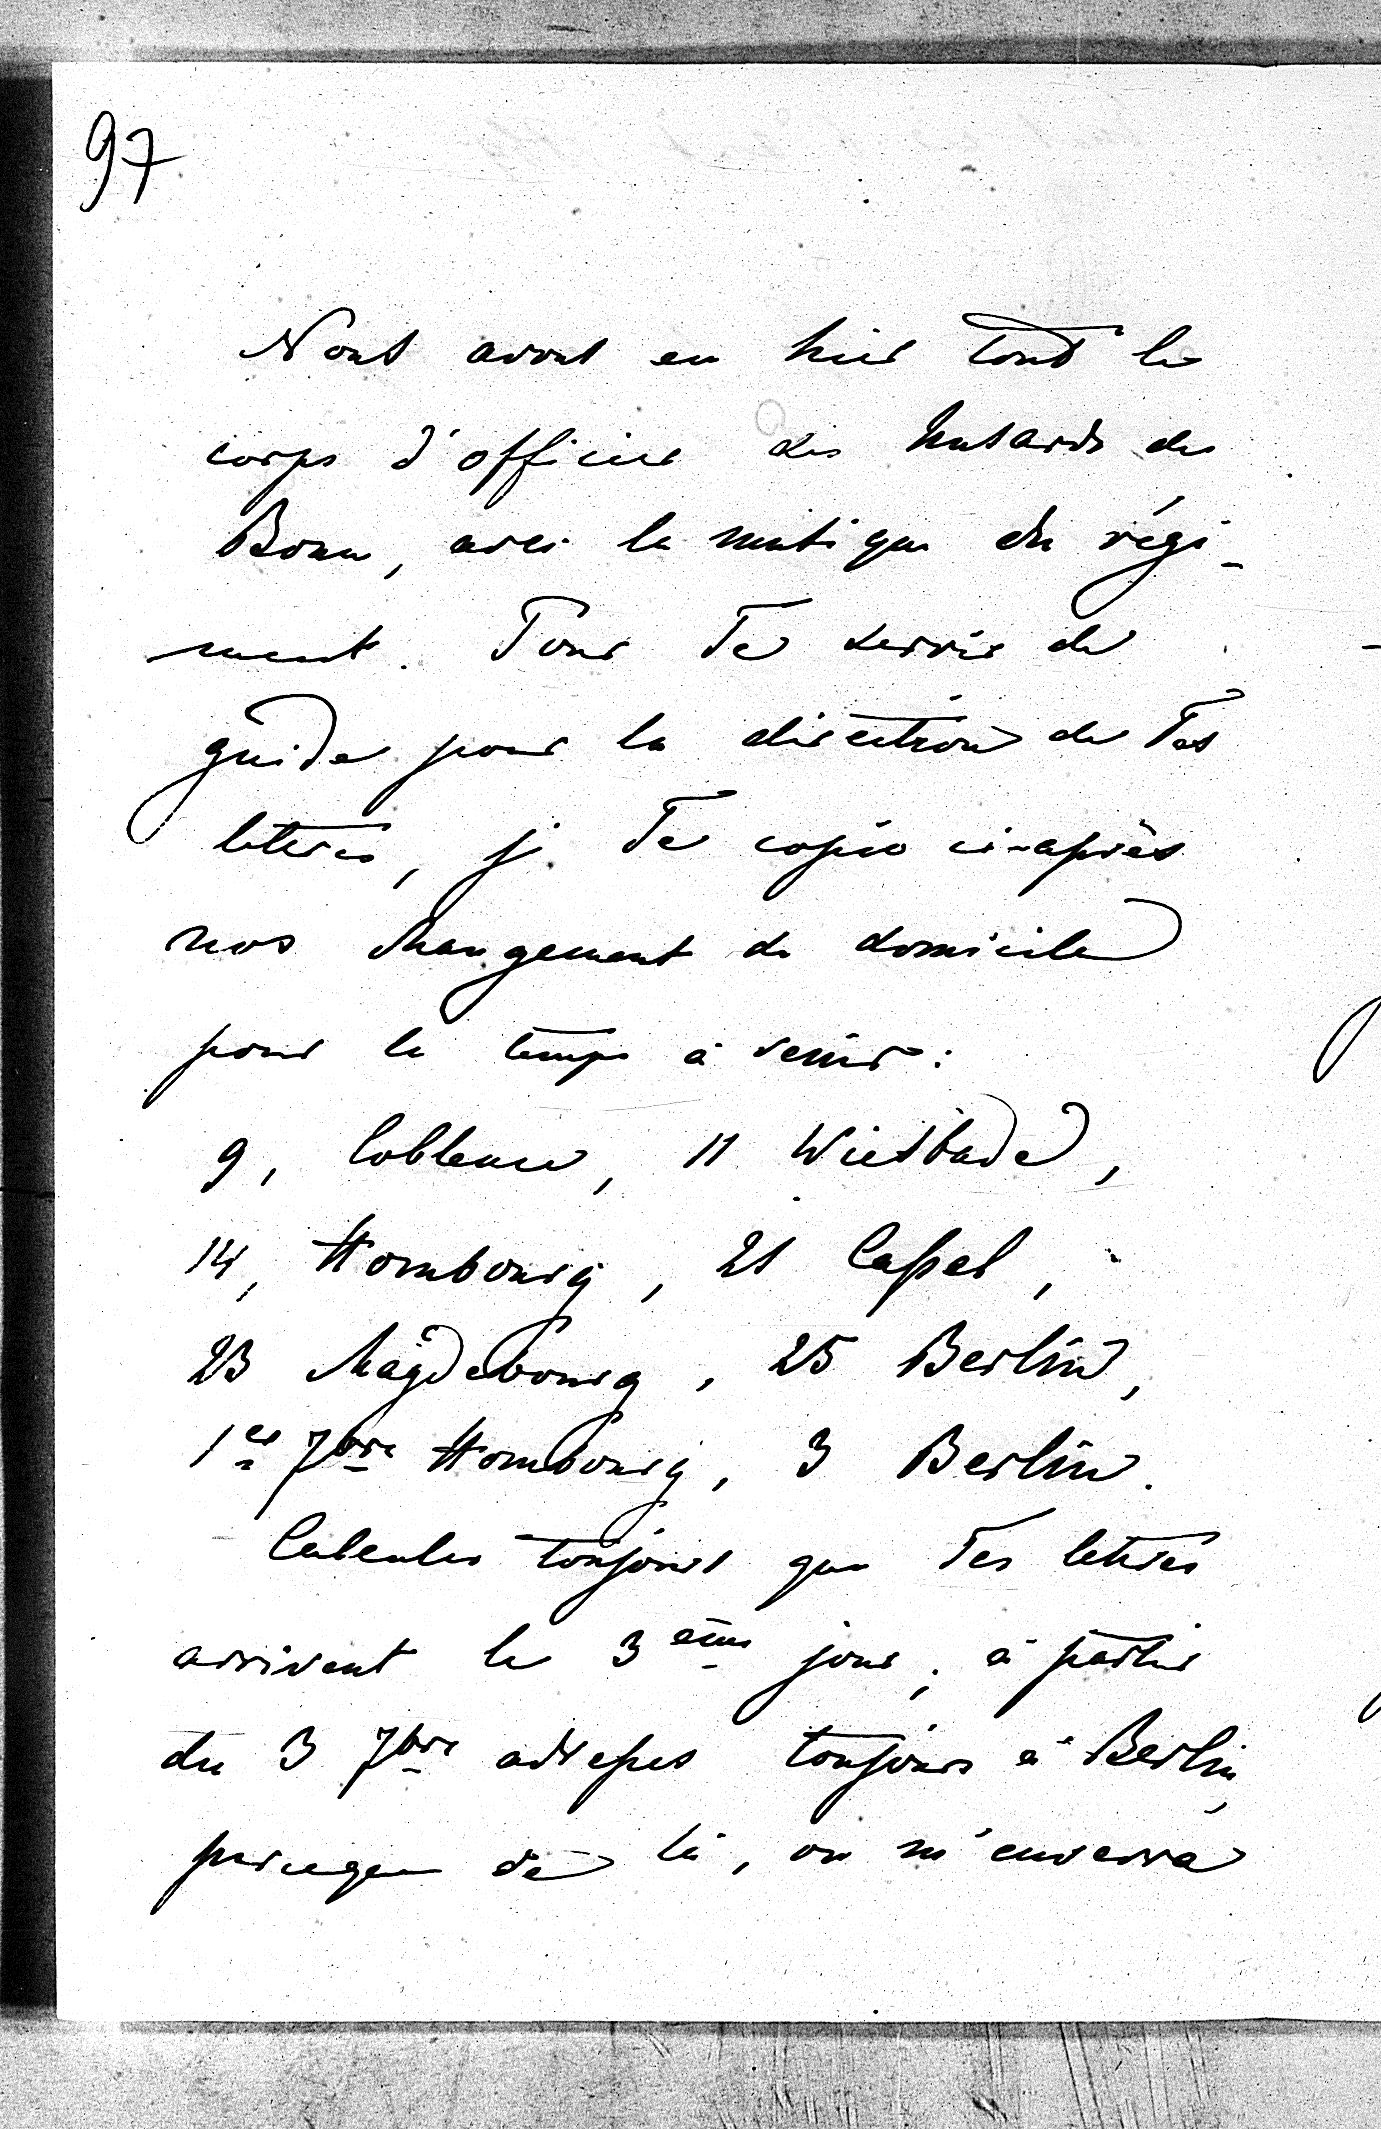 97
Nous avons eu hier tout le
corps d'officier des husards de
Bonn, avec la musique du régi-
ment. Pour Te servir de
guide pour la direction de Tes
lettres, je Te copie ci-après
nos changement de domicile
pour le temps à venir:
9, Coblence, 11 Wiesbade,
14, Hombourg, 21 Cassel,
23 Magdebourg, 25 Berlin,
1er 7bre Hombourg, 3 Berlin.
Calcules toujours que Tes lettres
arrivent le 3ème jour; à partir
du 3 7bre adresses toujours à Berlin,
puisque de là, on m'enverra